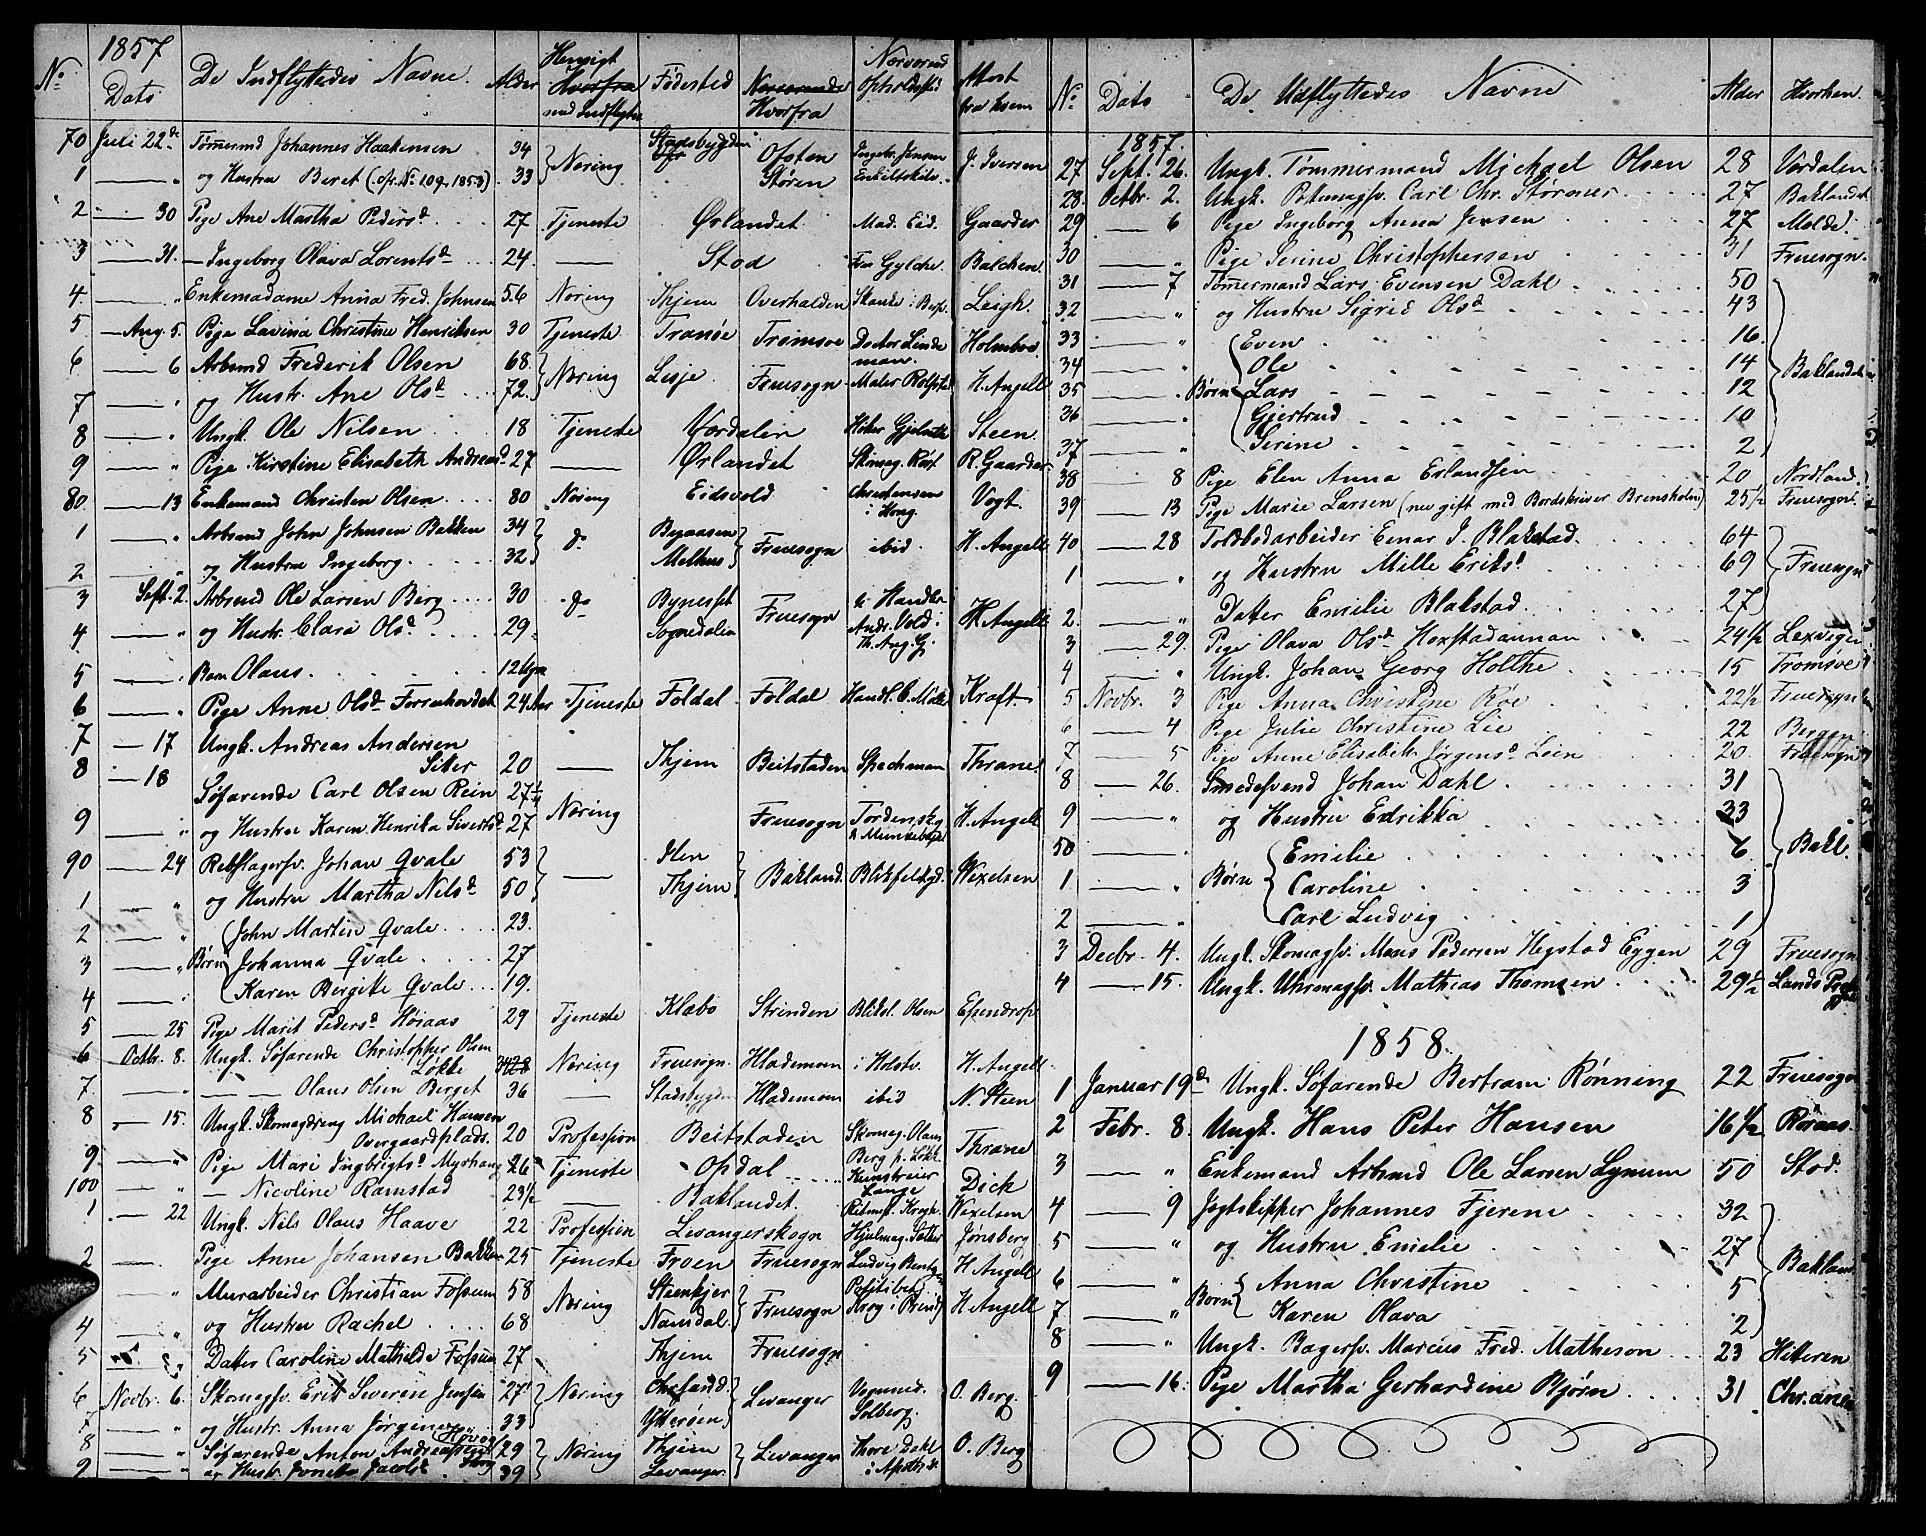 1857
No Dato De Indflyttedes Navne. Alder Hensigt Hvorfra med Indflytn Fødested Nærværende Hvorfra Nærværend Opholdssted Attest fra hvem
70 Juli 22de Tømermd Johannes Haakensen 34 Næring Stadsbygden Ofsten Ingebr. Jensen J. Iversen
1 — " og Hustru Beret (op. No 109. 1858) 33 Støren Enkeltskilv.
2 — 30 Pige Ane Martha Pedersd. 27 Tjeneste Ørlandet Mad. Eid. Gaarder
3 — 31. — Ingeborg Olava Lorentsd. 24. — Stod Fru Gylche. Balchen.
4. — " Enkemadame Anna Fred. Johnsen 56 Næring Thjem Overhalden Leigh.
5 — Aug. 5. Pige Lavina Christine Henriksen 30 Tjeneste Tranøe Tromsøe Doctor Lindeman. Holmboe
6 — 6 Arbmd Frederik Olsen 68. Næring Lesje. Fruesogn Maler Rolfstad H. Angell
7 — " og Hustr. Ane Olsd. 72.
8 — " Ungk. Ole Nilsen 18 Tjeneste Værdalen Steen.
9 — " Pige Kirstine Elisabeth Andreasd. 27 — Ørlandet Skomag. Røst R. Gaarder
80. — 13 Enkemand Christen Olsen 80 Næring Eidsvold Christensen i Kong. Vogt.
1 — " Arbmd John Johnsen Bakken 34 do Byaasen Fruesogn ibid. H. Angell
2 — " og Hustru Ingeborg 32 Melhus
3 Sept. 2. Arbmd Ole Larsen Berg 30 do Bynesset Fruesogn H. Angell
4 — " og Hustr. Clara Olsd. 29. Sognedalen Andr. Vold i Th. Ang. G.
5 — " Barn Olaus 12 Ugr
6 — " Pige Anne Olsd. Forrehovdet 24 Aar Tjeneste Foldal Foldal Kraft
7 — 17 Ungk. Andreas Andersen Sitter 20 — Thjem Beitstaden Spechman Thrane.
8 — 18 Søfarende Carl Olsen Rein 27¼ Næring Fruesogn Tordenskj. H. Angell
9 — " og Hustru Karen Henrika Sivertsd. 27
90 — 24 Rebslagersv. Johan Qvale 53 — Ilen Bakland. Wexelsen
1 — " og Hustru Martha Nilsd. 50 Thjem
2 — " John Martin Qvale 23.
3 — " Børn Johanna Qvale 27
4 — " Karen Bergitte Qvale 19.
5 — 25 Pige Marit Pedersd. Høiaas 29 Tjeneste Klæbo Strinden Bliksl. Olsen Esendrop
6 Octbr. 8. Ungk. Søfarende Christopher Olsen Løkke 34 28 Næring Fruesogn. Hlademoen i Holstv. H. Angell
7. — " — — Olaus Olsen Berget 36 — Stadsbygden Hlademoen ibid N. Steen
8 — 15. Ungk. Skomagdreng Michael Hansen Overgaardplads. 20 Profession Beitstaden Skomag. Olaus Berg Thrane
9. — " Pige Mari Ingbrigtsd. Myrhaug 26 Tjeneste Opdal Kunstdreier Lange Dick
100 — " — Nicoline Ramstad 23½ — Baklandet. Wexelsen
1 — 22 Ungk. Nils Olaus Haave 22 Profession Levangerskogn Jønsberg
2 — Pige Anne Johansen Bakken 25 Tjeneste Froen Fruesogn Ludvig H. Angell
— " Murarbeider Christian Fossum 58 Næring Steenkjer Fruesogn H. Angell
4 — " og Hustru Rachel 68 Namdal.
5 — Datter Caroline Mathilde Fossum 27 Thjem Fruesogn
6 Novbr. 6. Skomagsv. Erik Severin Jensen 27 Næring Levanger Vognmd. Solberg. O. Berg
7 — " og Hustr. Anna Jørgine 33 Ytterøen
8 — " Søfarende Anton Andreassen 29 Næring Thjem Levanger Thore Dahl O. Berg
9 — " og Hustr. Jonetta Jacobsd. 39 Levanger.
No Dato De Udflyttedes Navne Alder Hvorhen.
1857.
27 Sept. 26. Ungk. Tømmermand Michael Olsen 28 Værdalen
28. Octbr. 2. Ungk. Pottemagsv. Carl Chr. Størmer 27 Baklandet
29 — 6 Pige Ingeborg Anna Jensen 27 Molde.
30 — " Pige Serine Christophersen 31 Fruesogn.
31 — 7 Tømermand Lars Evensen Dahl 50
32 — " og Hustru Sigrid Olsd. 43
33 — " Even 16
34 — " Ole 14 Baklandet
35 — " Børn Lars 12
36 — Gjertrud 10
37 — " Serine 2
38 8 Pige Elen Anna Erlandsen 20 Nordland.
39 — 13 Pige Marie Larsen (nu gift med Bordskriver Brensholm) 25½ Fruesogn.
40 — 28 Toldbodarbeider Einar J. Blakstad. 64
1 — " og Hustru Mille Eriksd. 69 Fruesogn
2. — " Datter Emilie Blakstad 27
3 — 29. Pige Olava Olsd. Hoxstadaunan 24½ Lexvigen
4 — " Ungk. Johan Georg Holthe 15 Tromsøe
5 Novbr. 3 Pige Anna Christine Røe 22½ Fruesogn
6 — 4 Pige Julie Christine Lie 22 Bergen
7 — 5 Pige Anne Elisabeth Jørgensd. Leen 20 Fruesogn
8 — 26. Smedesvend Johan Dahl 31
9 — " og Hustru Edrikka 33
50 — " Emilie 6 Bakl.
1 — " Børn Caroline 3
2 — " Carl Ludvig 1
3 Decbr. 4. Ungk. Skomagsv. Mons Pedersen Hegstad Eggen 29 Fruesogn
4 — 15. Ungk. Uhrmagsv. Mathias Thomsen 29½
1858
1 Januar 19de Ungk. Søfarende Bertram Rønning 22 Fruesogn
2 Febr. 8. Ungk. Hans Peter Hansen 16½ Røraas.
3 — " Enkemand Arbmd Ole Larsen Lynum 50 Stod.
4 — 9 Jagtskipper Johannes Fjerem 32
5 — " og Hustru Emilie 27
6 — " Børn Anna Christine 5 Bakland
7 — " Karen Olava 2
8 — " Ungk. Bagersv. Marcus Fred. Matheson 23 Hitteren
9 — 16. Pige Martha Gerhardine Bjørn 31 Chr.ania